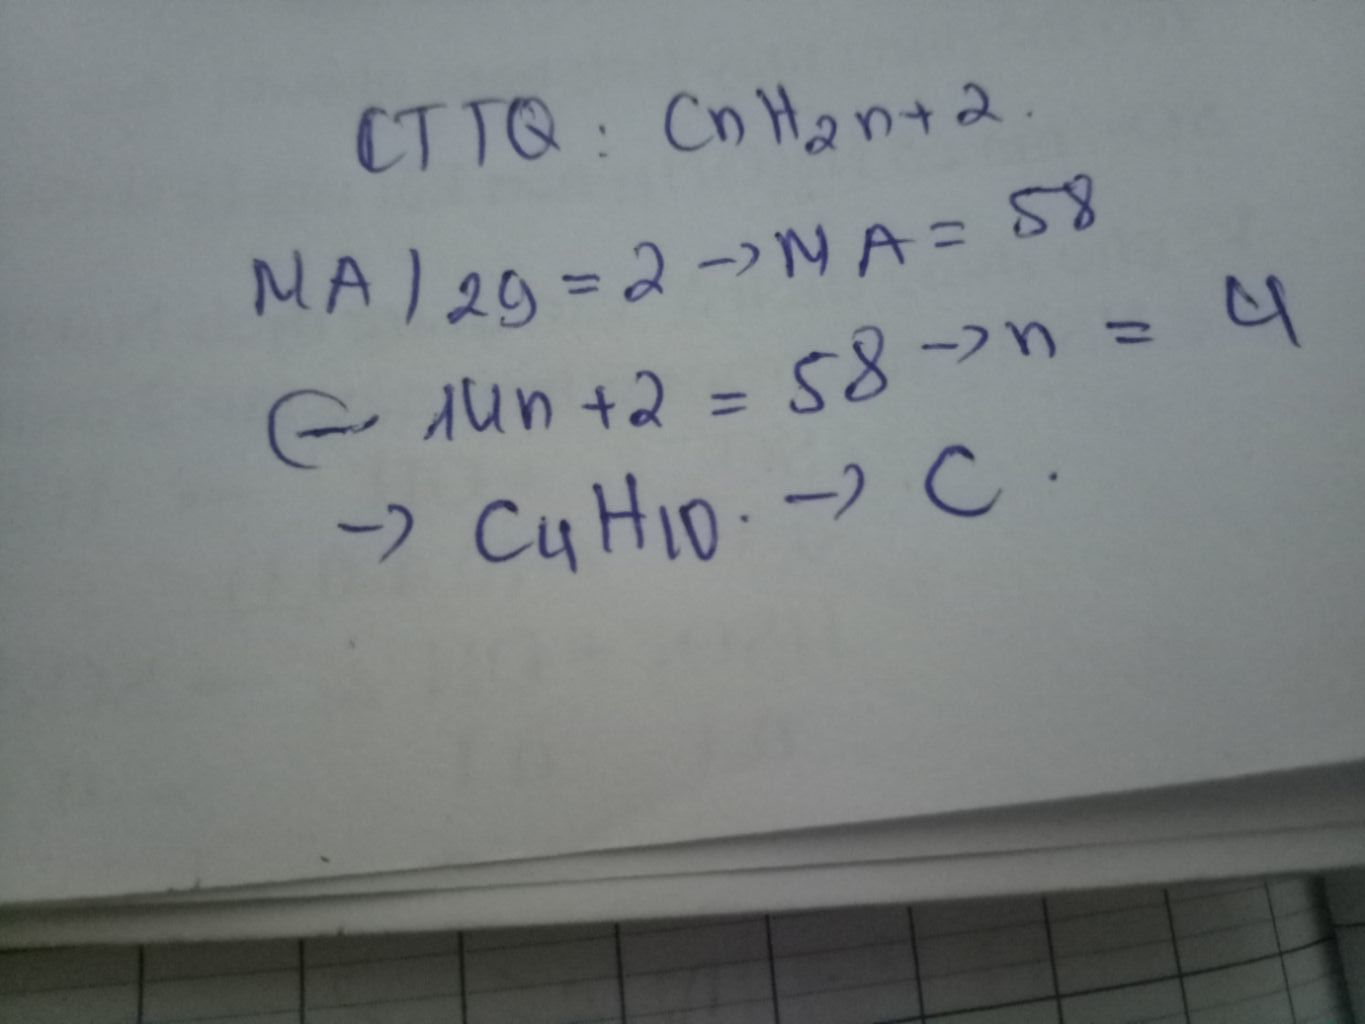 CTTQ: CnH2n+2.
MA/29 = 2 -> MA = 58
14n+2 = 58 -> n = 4
-> C4H10. -> C.